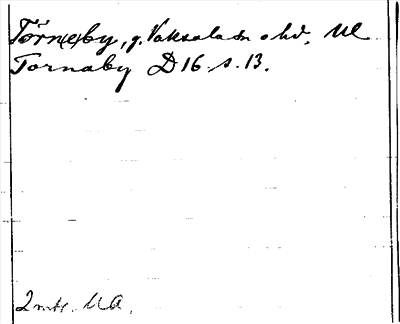 Törn(e)by, g. Vaksala sn o hd, Ul
Tornaby D16 s. 13.
2 mtr. UA.